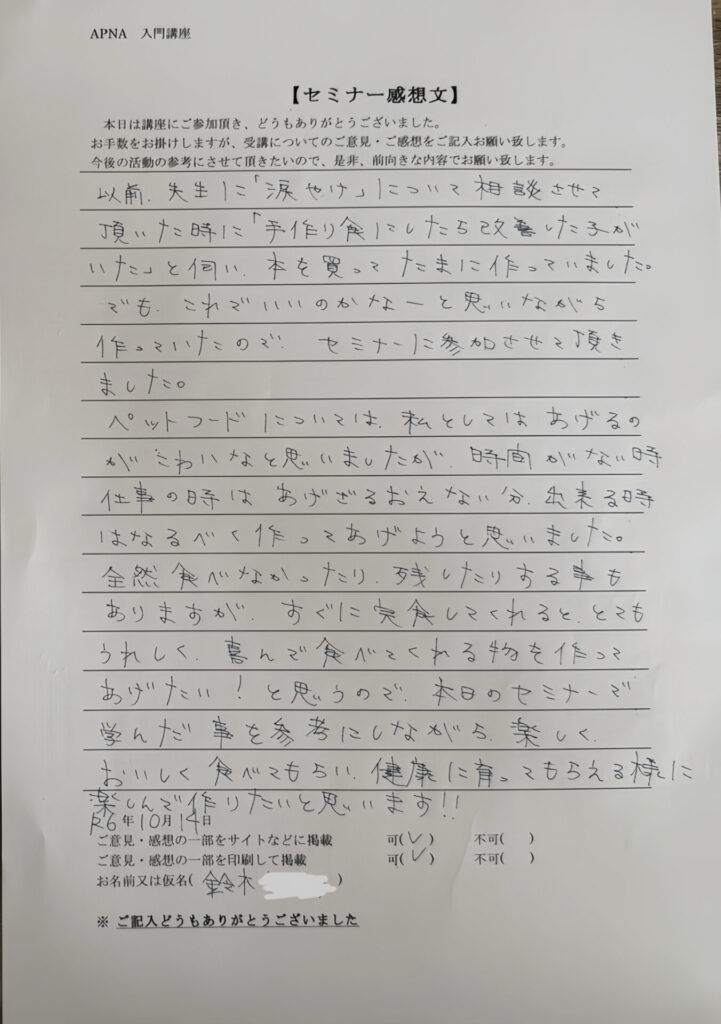 APNA 入門講座
【セミナー感想文】
本日は講座にご参加頂き、どうもありがとうございました。
お手数をお掛けしますが、受講についてのご意見・ご感想をご記入お願い致します。
今後の活動の参考にさせて頂きたいので、是非、前向きな内容でお願い致します。
以前、先生に「涙やけ」について相談させて
頂いた時に「手作り食にしたら改善した子が
いた」と伺い、本を買ってたまに作っていました。
でも、これでいいのかなーと思いながら
作っていたので、セミナーに参加させて頂き
ました。
ペットフードについては、私としてはあげるの
がこわいなと思いましたが、時間がない時
仕事の時はあげざるおえない分、出来る時
はなるべく作ってあげようと思いました。
全然食べなかったり、残したりする事も
ありますが、すぐに完食してくれると、とても
うれしく、喜んで食べてくれる物を作って
あげたい!と思うので、本日のセミナーで
学んだ事を参考にしながら、楽しく、
おいしく食べてもらい、健康に育ってもらえる様に
楽しんで作りたいと思います!!
R6年10月14日
ご意見・感想の一部をサイトなどに掲載 可(✓) 不可( )
ご意見・感想の一部を印刷して掲載 可(✓) 不可( )
お名前又は仮名(鈴木 )
※ ご記入どうもありがとうございました